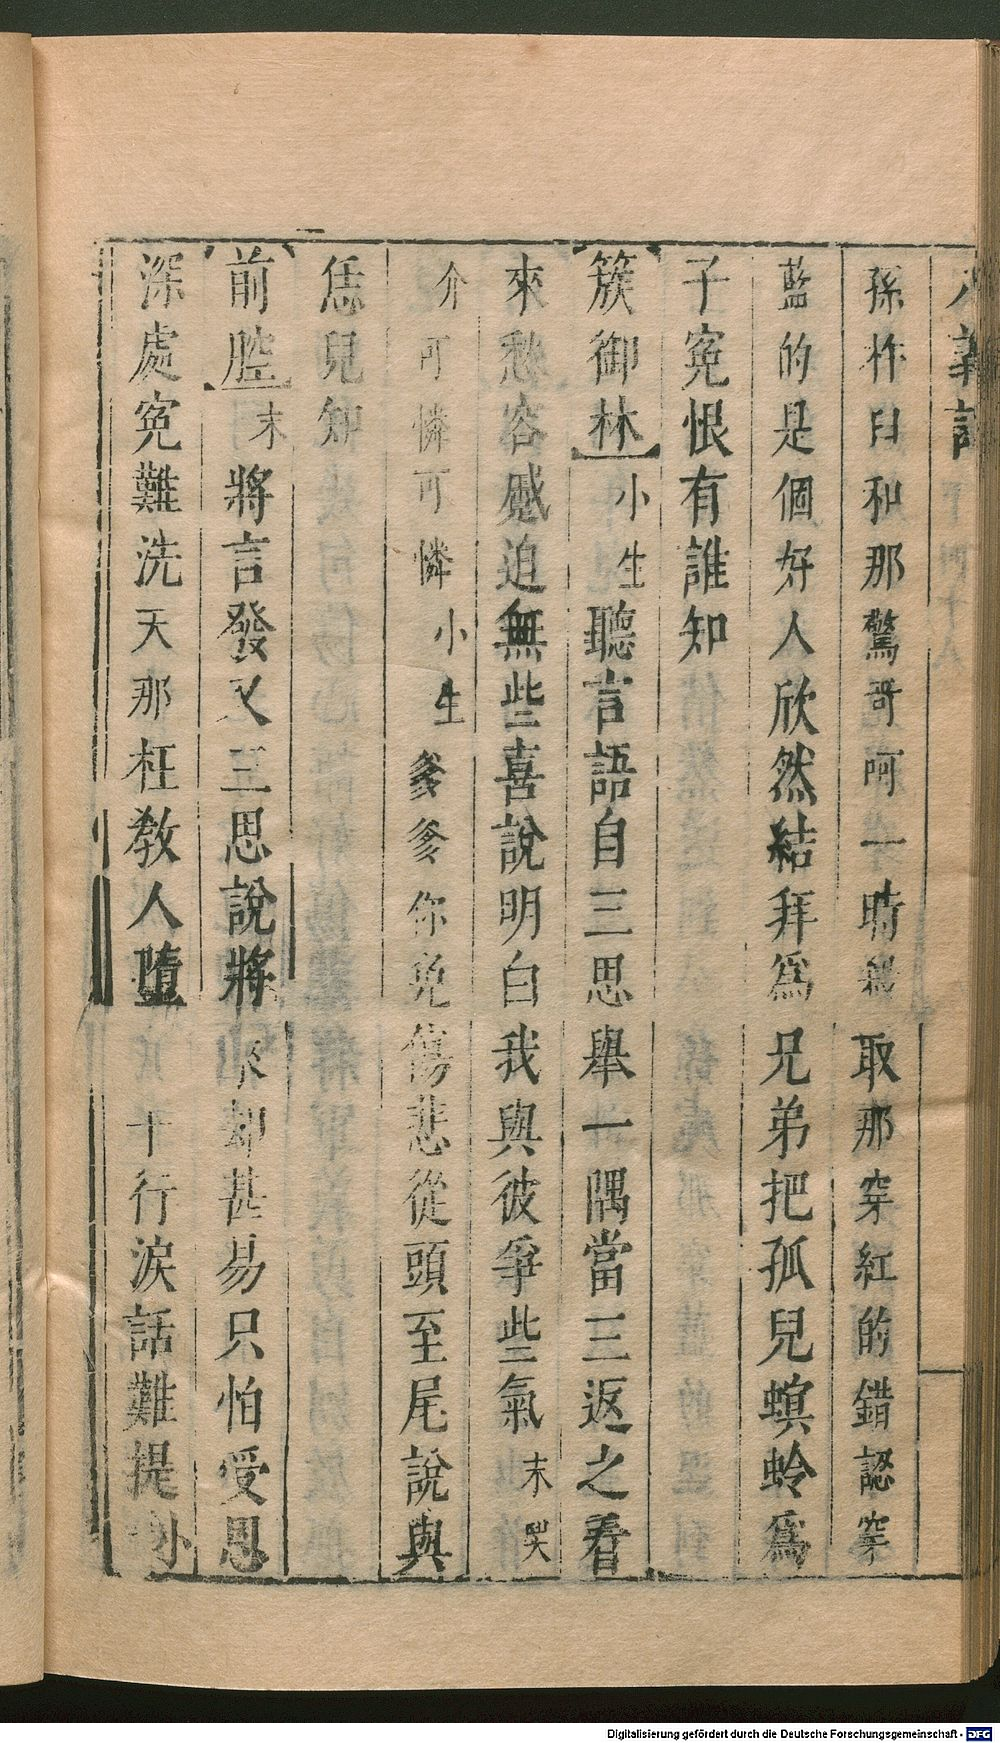 孫杵臼和那驚哥呵一時錯取那穿紅的錯認穿
藍的是個好人欣然結拜爲兄弟把孤兒螟蛉爲
子冤恨有誰知
簇御林小生聽言語自三思舉一隅當三返之看
來愁容慼迫無些喜說明白我與彼爭些氣末哭
介可憐可憐小生爹爹你免傷悲從頭至尾說與
恁兒知
前腔末將言發又三思說將來却甚易只怕受恩
深處冤難洗天那枉教人墮 十行淚話難提小
Digitalisierung gefördert durch die Deutsche Forschungsgemeinschaft - DFG